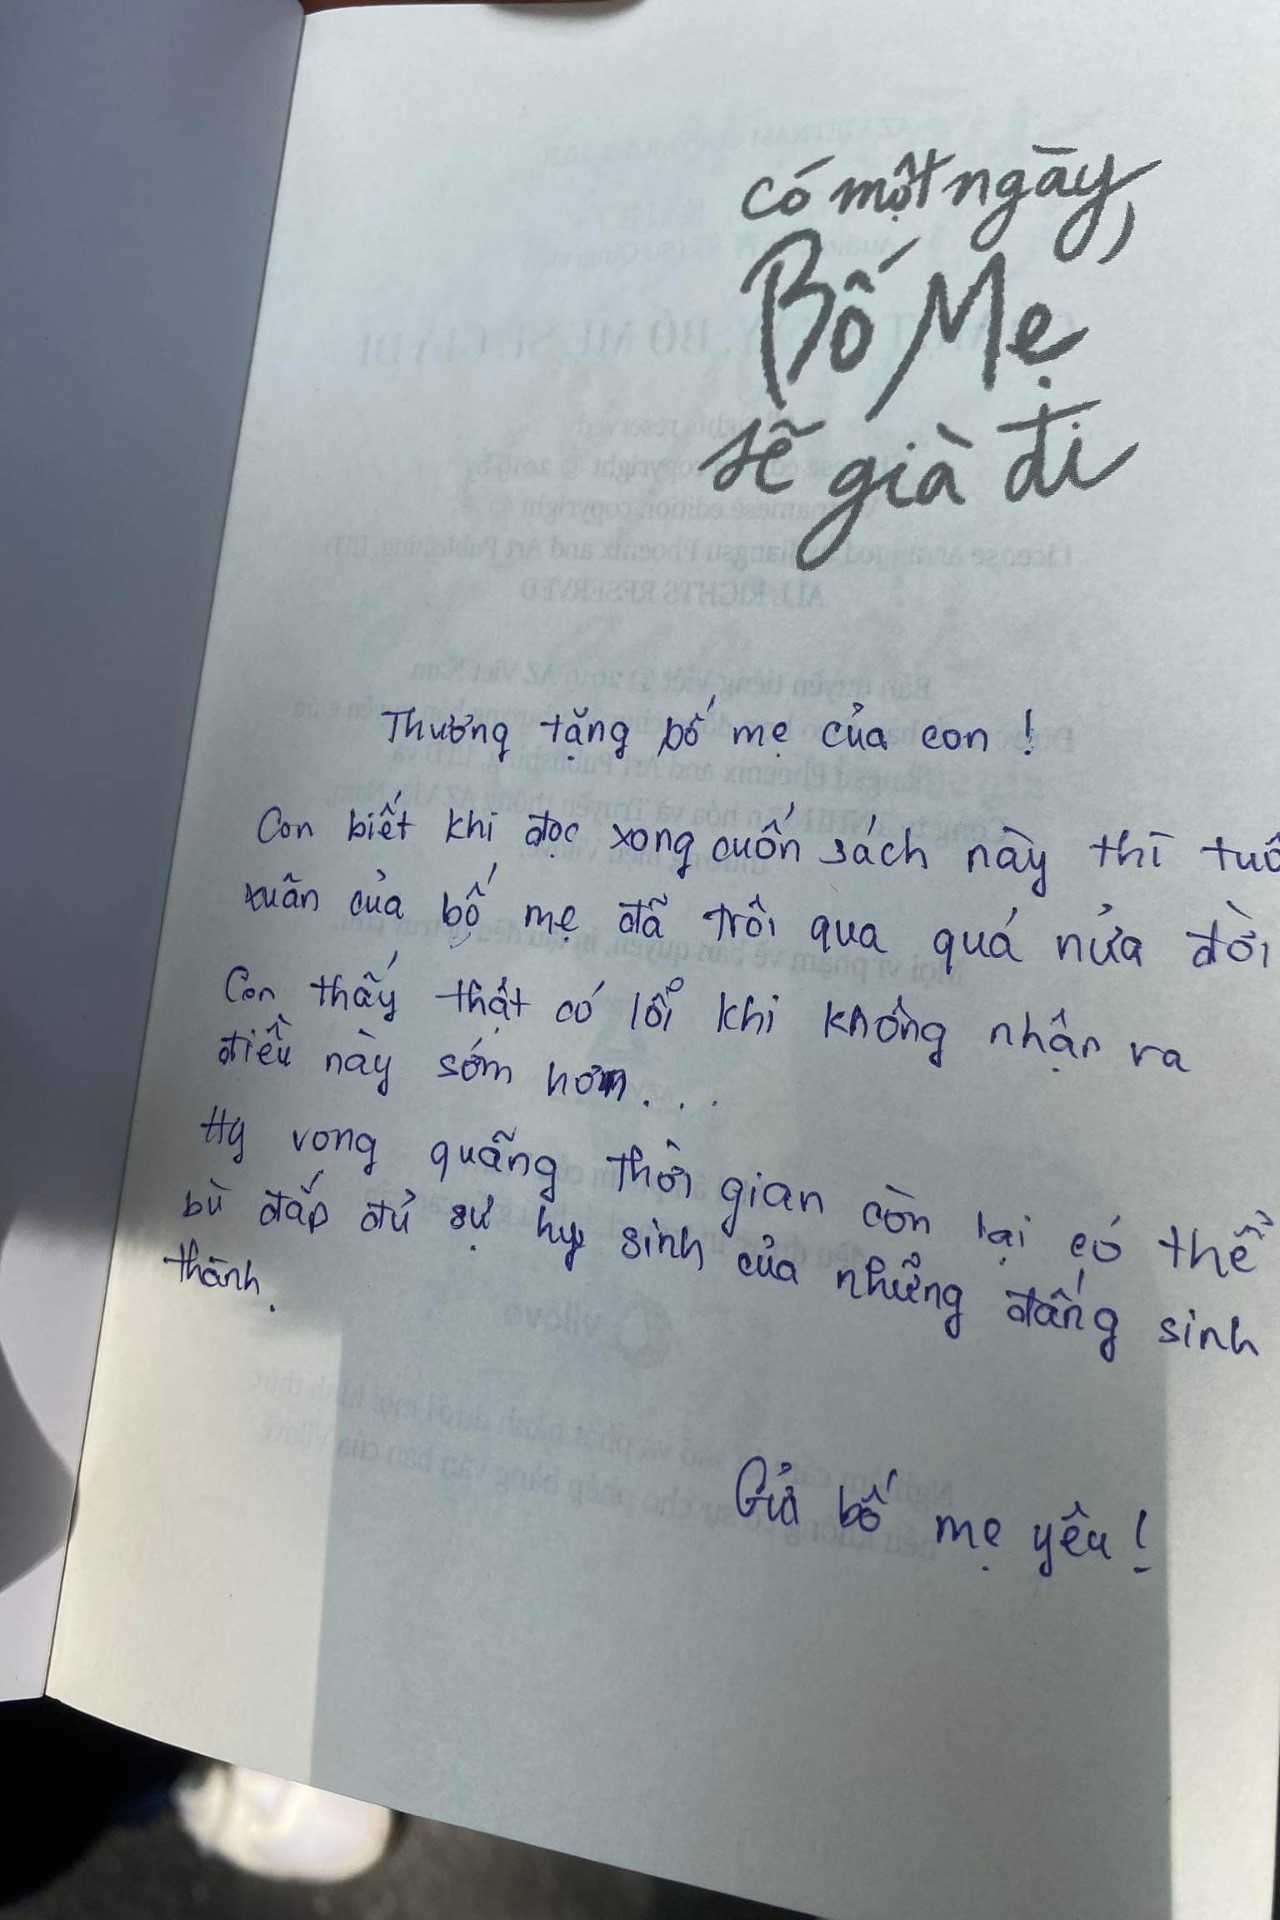 có một ngày,
Bố Mẹ
sẽ già đi
Thương tặng bố mẹ của con !
Con biết khi đọc xong cuốn sách này thì tuổ
xuân của bố mẹ đã trôi qua quá nửa đời
Con thấy thật có lỗi khi không nhận ra
điều này sớm hơn...
Hy vong quãng thời gian còn lại có thể
bù đắp đủ sự hy sinh của những đấng sinh
thành.
Gửi bố mẹ yêu !